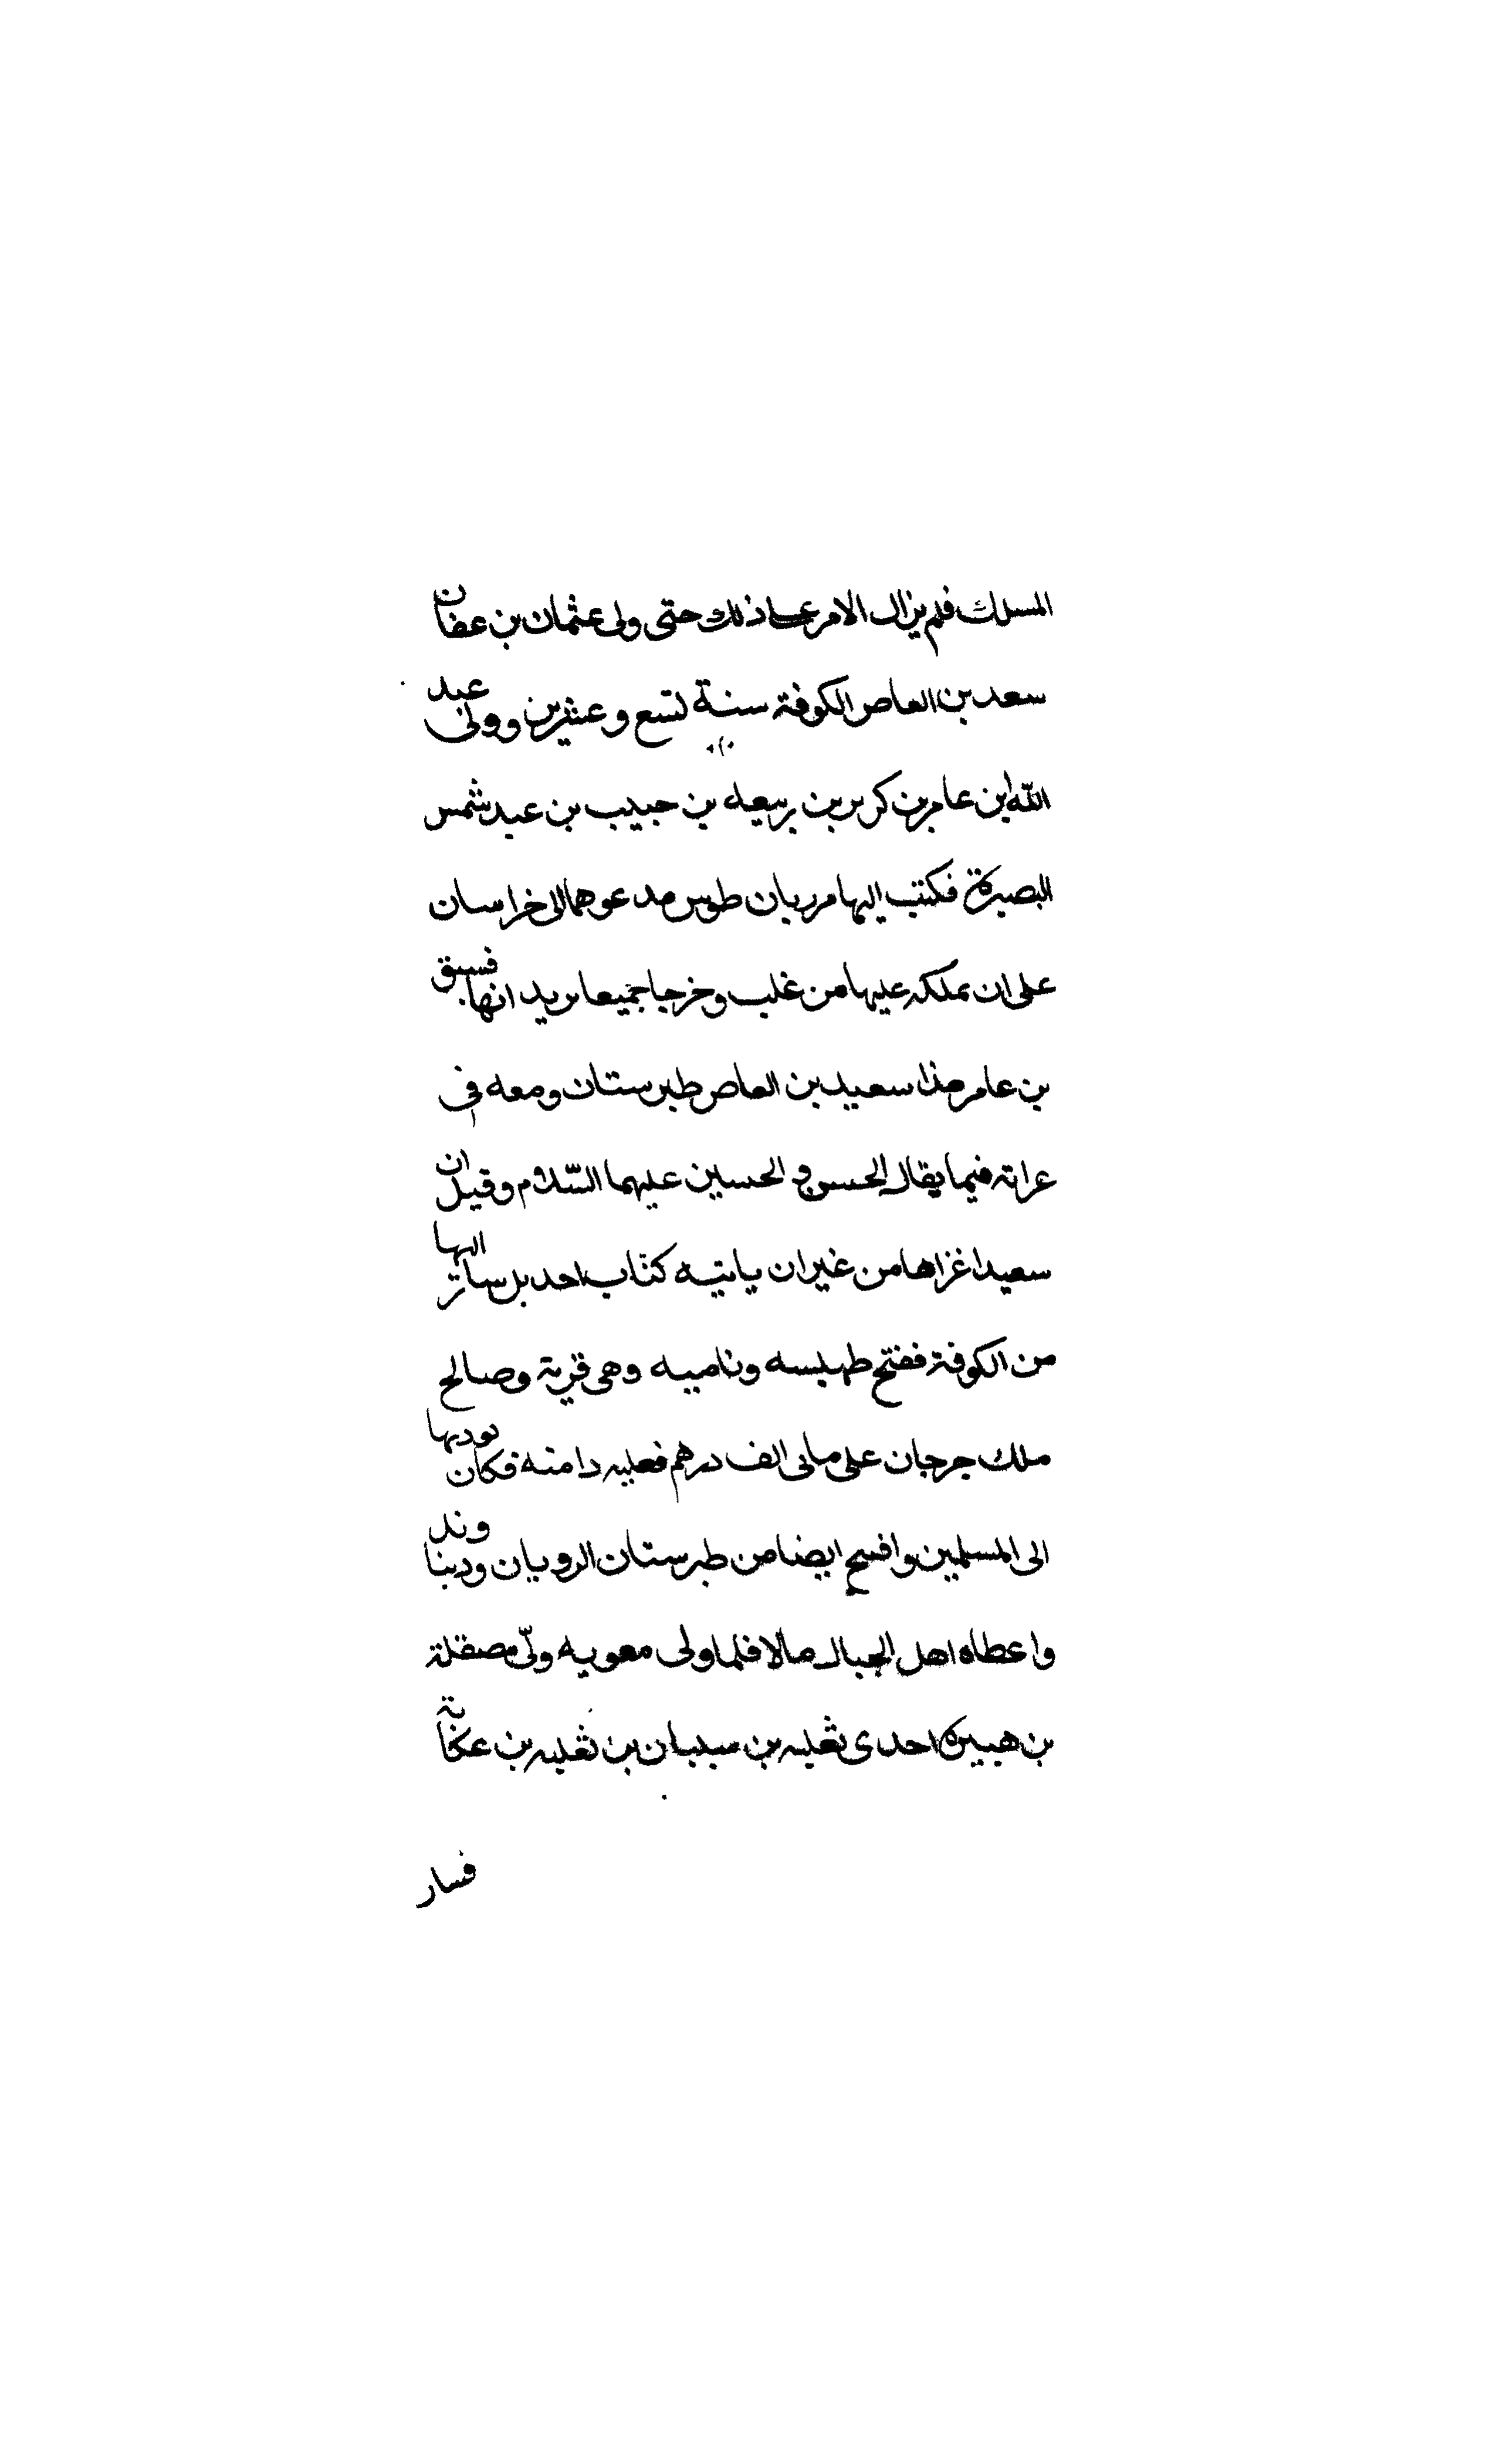 المسلك فلم يزال الامر على ذلك حتى ولى عثمان بن عفان
سعد بن العاص الكوفة سنة تسع وعشرين وولى عبد
الله ابن عامر بن كريز بن ربيعه بن حبيب بن عبد شمس
البصرة فكتب اليهما مرزبان طوس يدعوهما الى خراسان
على ان يملكه عليها من غلب وخرجا جميعا يريد انها فسبق
بن عامر فغذا سعيد بن العاص طبرستان ومعه في
غزاته فيما يقال الحسن و الحسين عليهما السّلام وقيل ان
سعيدا غزاها من غير ان ياتيه كتاب احد بل سار اليها
من الكوفة ففتح طميسه وناميه وهى قرية وصالح
ملك جرجان على مايى الف درهم فعلبيه دامنه فكان يوديها
الى المسلمين وافتتح ايضا من طبرستان الرويان ودنباوند
واعطاه اهل الجبال مالا فلما ولى معويه ولّى مصقلة
بن هبيرة احدى ثعلبه بن شيبان بن ثعلبه بن عكابة
فسار